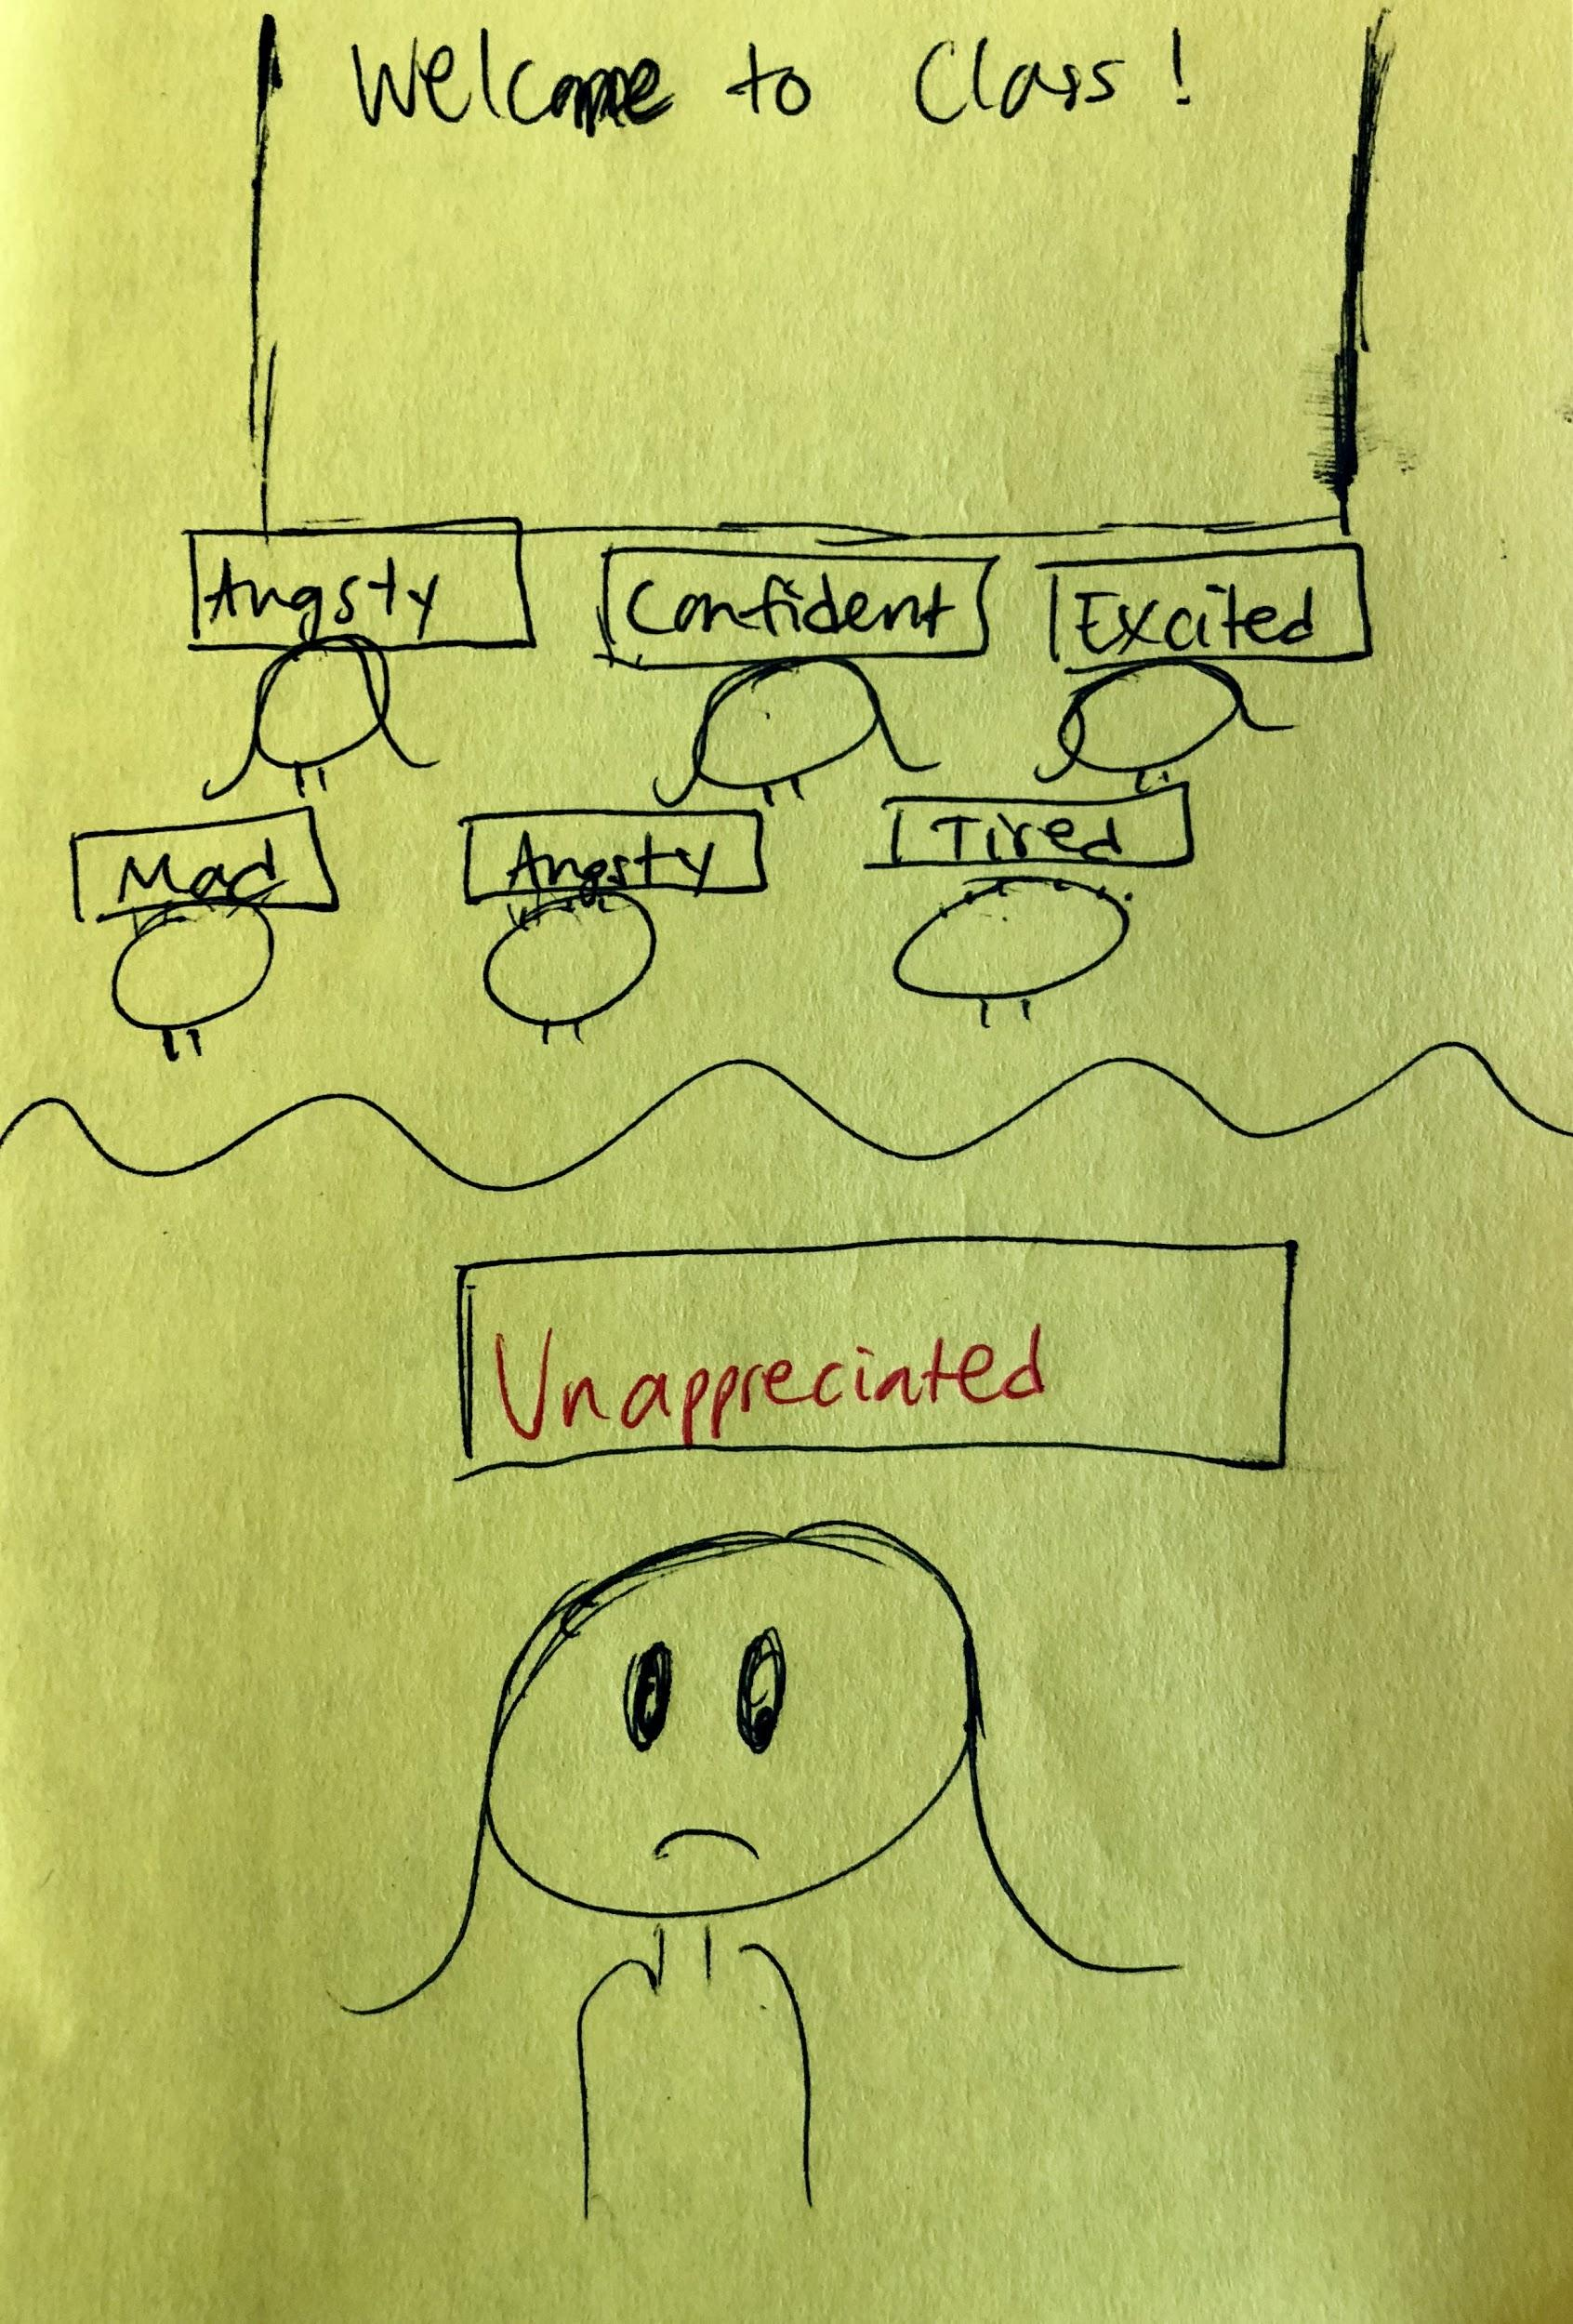 Welcome to Class!
Angsty Confident Excited
Mad Angsty Tired
Unappreciated